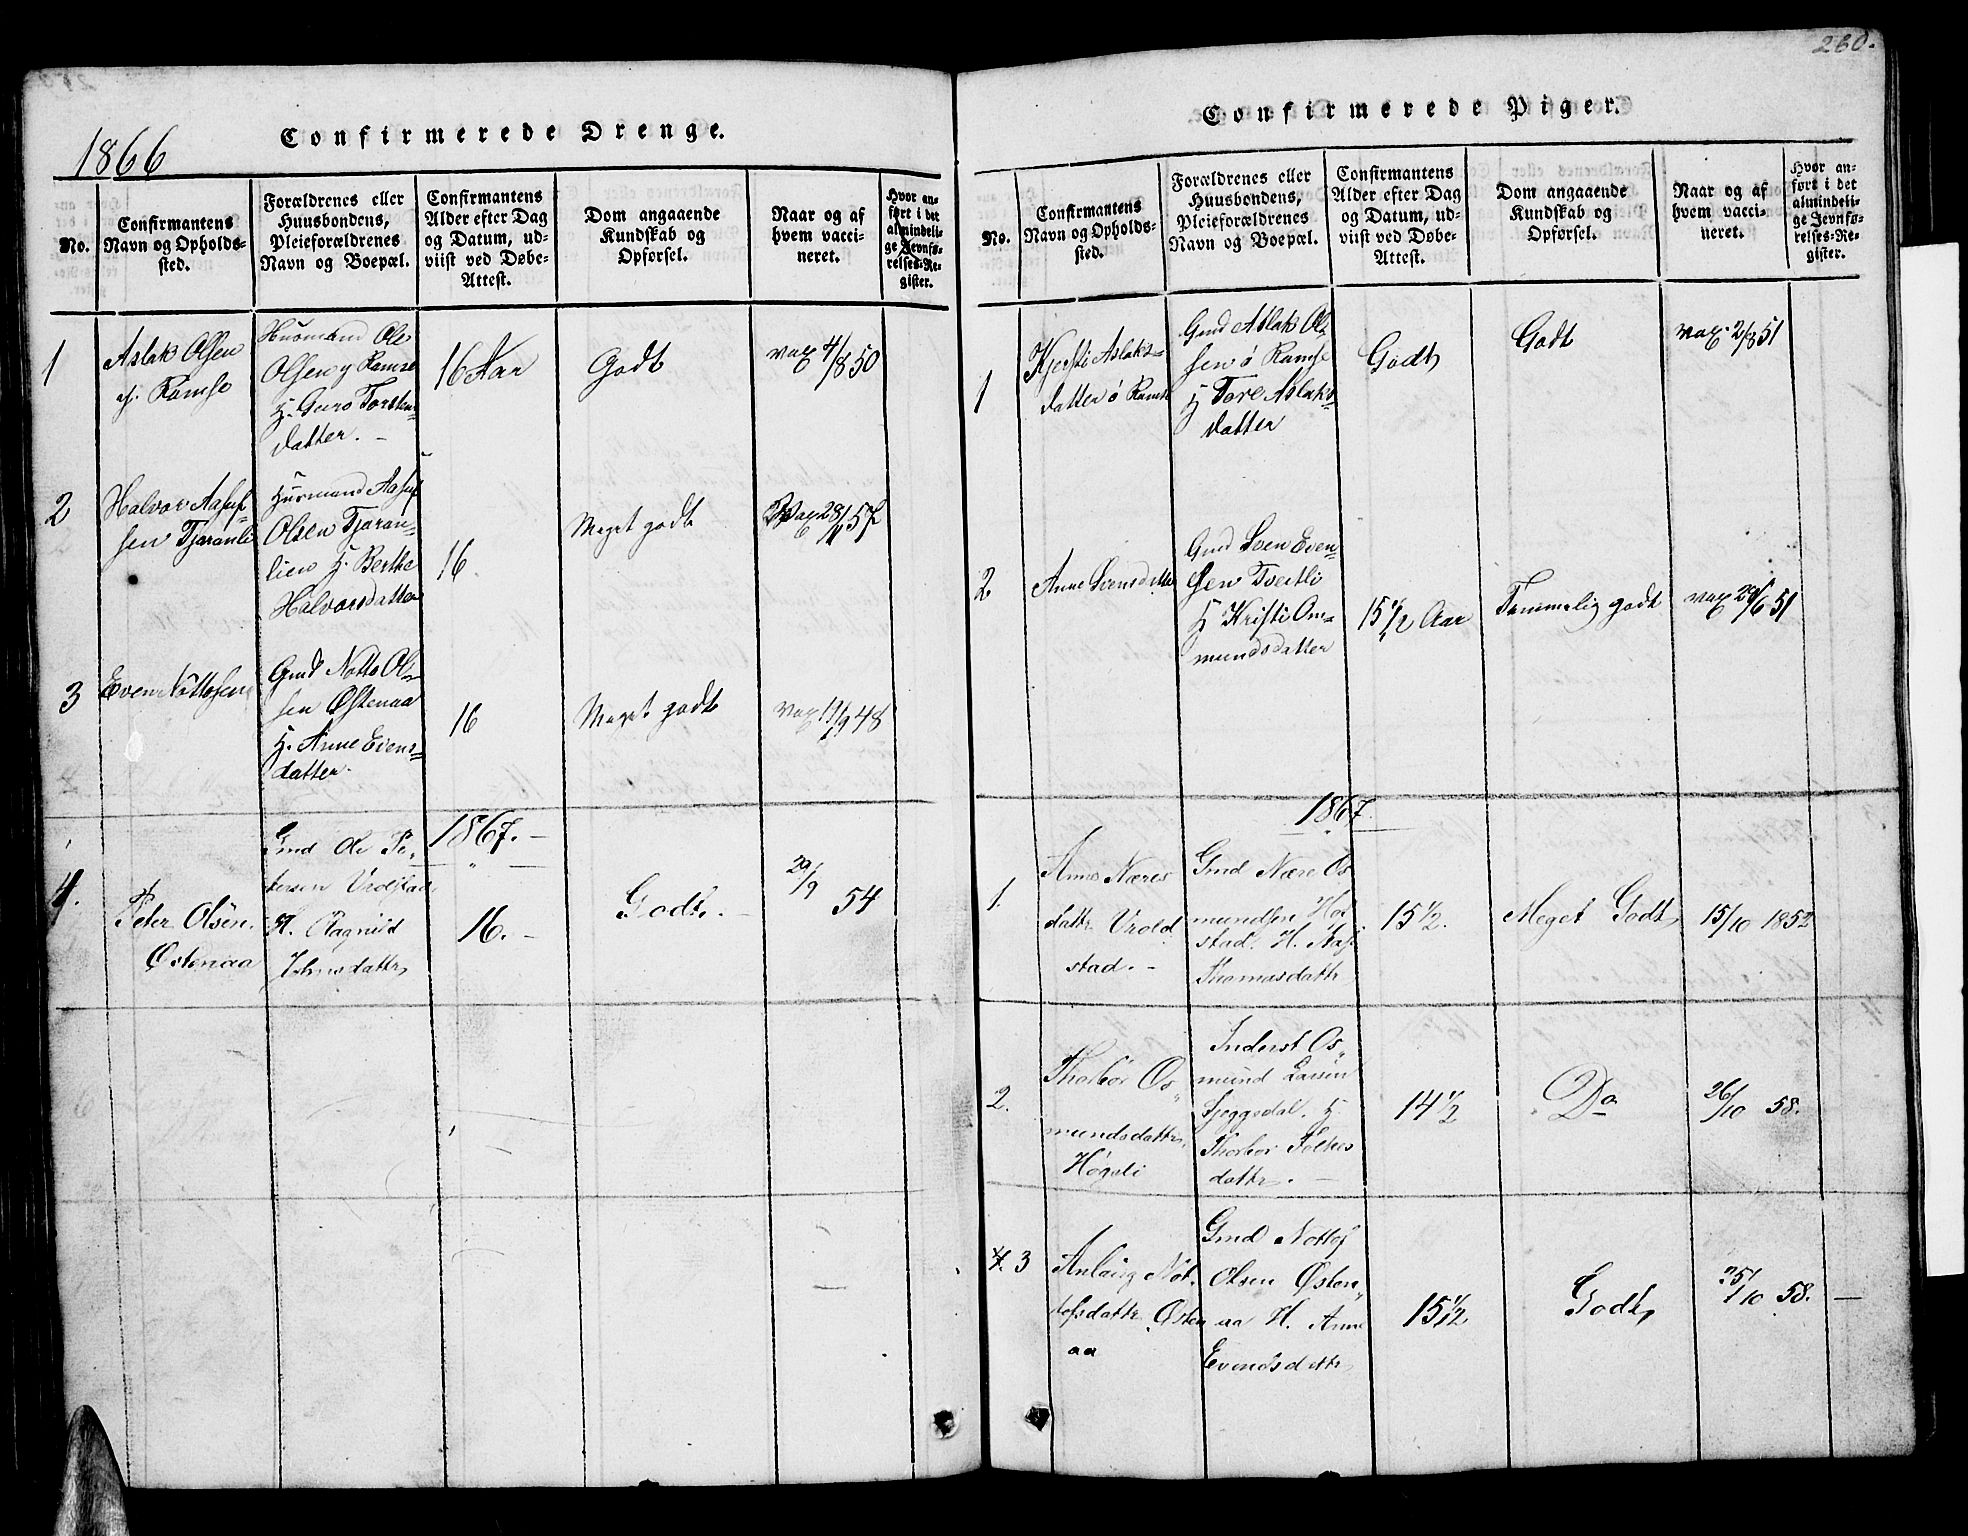 260.
1866
Confirmerede Drenge.
No.
Confirmantens
Navn og Opholds-
sted.
Forældrenes eller
Huusbondens,
Pleieforældrenes
Navn og Boepæl.
Confirmantens
Alder efter Dag
og Datum, ud-
viist ved Døbe-
Attest.
Dom angaaende
Kundskab og
Opførsel.
Naar og af
hvem vacci-
neret.
Hvor an-
ført i det
almindeli-
ge Jevnfø-
relses-Re-
gister.
1
Aslak Olsen
Ramse
Husmand Ole
Olsen y Ramse
H. Guro Torstens
datter. -
16 Aar
Godt
vax 4/8 50
2
Halvor Aasuf-
sen Tjaranli
Husmand Aasuf
Olsen Tjaran-
lien H. Berthe
Halvorsdatter
16.
Meget godt
Vax 28/11 57
3
Even Nottosen
Gmd Notto Ol-
sen Østenaa
H. Anne Evens-
datter.
16
Meget godt
vax 19/9 48
1867. -
4.
Peter Olsen.
Østenaa
Gmd Ole Pe-
tersen Vrolstad
H. Ragnild
Johnsdattr
16. -
Godt. -
29/9 54
Confirmerede Piger.
No.
Confirmantens
Navn og Opholds-
sted.
Forældrenes eller
Huusbondens,
Pleieforældrenes
Navn og Boepæl.
Confirmantens
Alder efter Dag
og Datum, ud-
viist ved Døbe-
Attest.
Dom angaaende
Kundskab og
Opførsel.
Naar og af
hvem vacci-
neret.
Hvor an-
ført i det
almindeli-
ge Jevnfø-
relses-Re-
gister.
1
Kjersti Aslaks-
datter ö Ramse
Gmd Aslak Ol-
sen ö Ramse
H Tore Aslaks-
datter
Godt
Godt
vax 2/8 51
2
Anne Svensdatter
Gmd Sven Even-
sen Tveitli
H Kristi Om-
mundsdatter
15 1/2 Aar
Temmelig godt
vax 29/6 51
1867.
1.
Anne Næres
dattr Vrold
stad. -
Gmd Nære Os
mundsen
stad. H. Aase
Thomasdattr
15 1/2.
Meget Godt
15/10 1852
2.
Thorbör Os„
mundsdattr.
Högeli
Inderst Os„
mund Larsen
H.
Thorbör Folkes
dattr. -
14 1/2
Do
26/10 58.
3
Anlaug Not„
tofsdattr Østen
aa
Gmd Nottof
Olsen Østen„
aa H. Anne
Evendsdattr
15 1/2
Godt
25/10 58. -